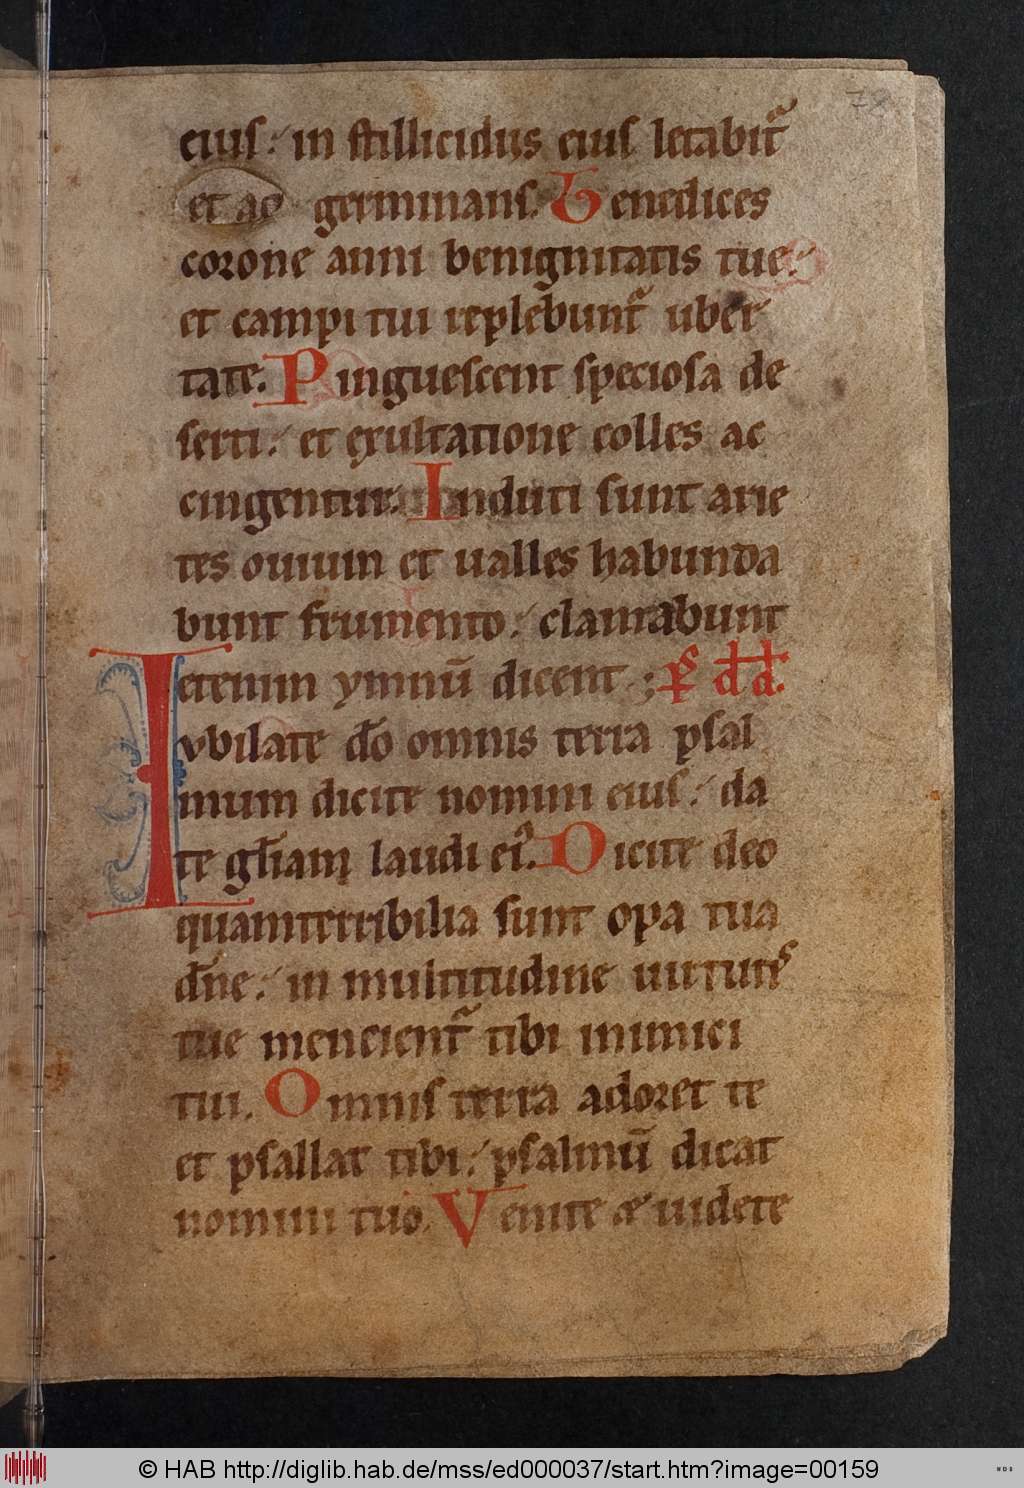 78
eius : in stillicidiis eius letabit᷑
et ac germinans. Benedices
corone anni benignitatis tue :
et campi tui replebunt᷑ uber
tate. Pinguescent speciosa de
serti : et exultatione colles ac
cingentur. Induti sunt arie
tes ouium et ualles habunda
bunt frumento : clamabunt
etenim ymnū dicent : ps dd.
Iubilate dō omnis terra psal
mum dicite nomini eius : da
te gl̄iam laudi ei᷒. Dicite deo
quamterribilia sunt opa tua
dn̄e : in multitudine uirtutis
tue mencient᷑ tibi inimici
tui. Omnis terra adoret te
et psallat tibi : psalmū dicat
nomini tuo. Venite & uidete
© HAB http://diglib.hab.de/mss/ed000037/start.htm?image=00159